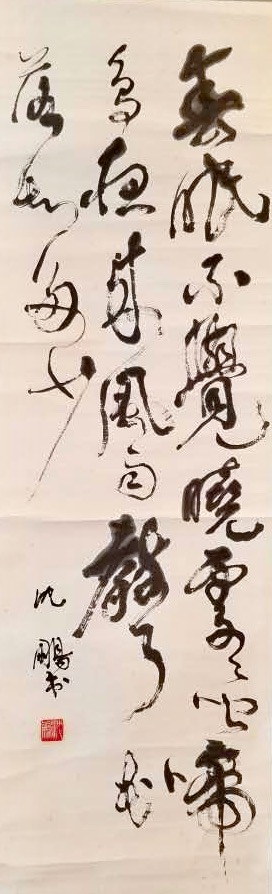 春眠不覺曉處々聞啼
鳥夜來風雨聲花
落知多少
沈鵬書